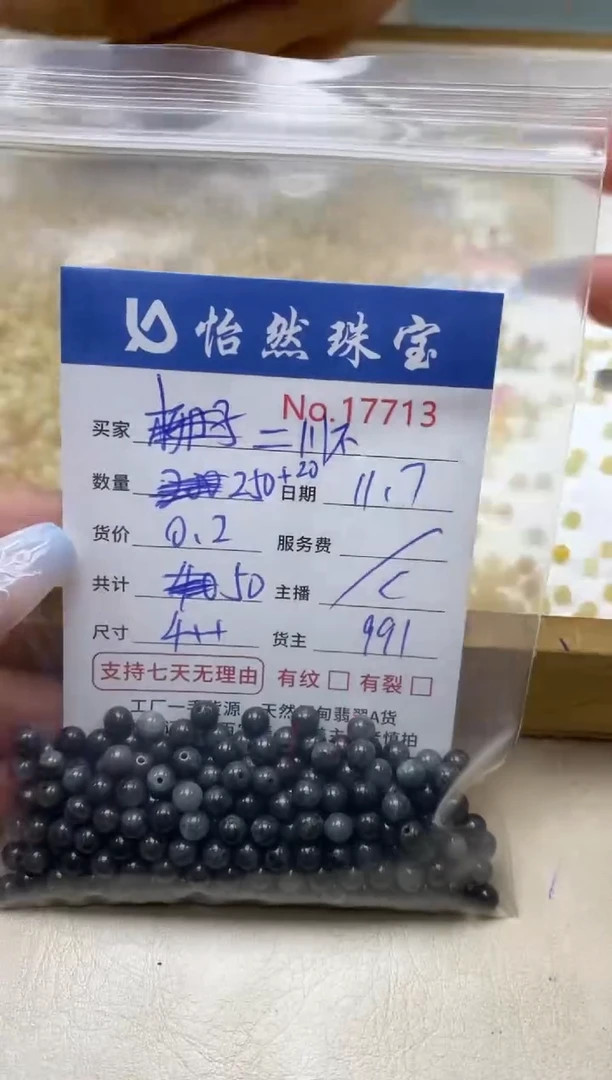 怡然珠宝
No.17713
买家 二川不
数量 250+20 日期 11.7
货价 0.2 服务费 /
共计 50 主播 /C
尺寸 4++ 货主 991
支持七天无理由 有纹 □ 有裂 □
工厂一手货源 天然缅甸翡翠A货
慎拍